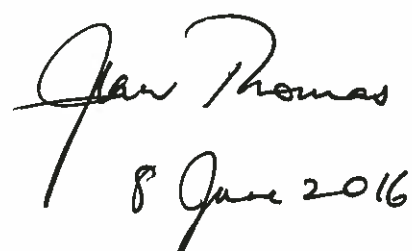 Jean Thomas
8 June 2016